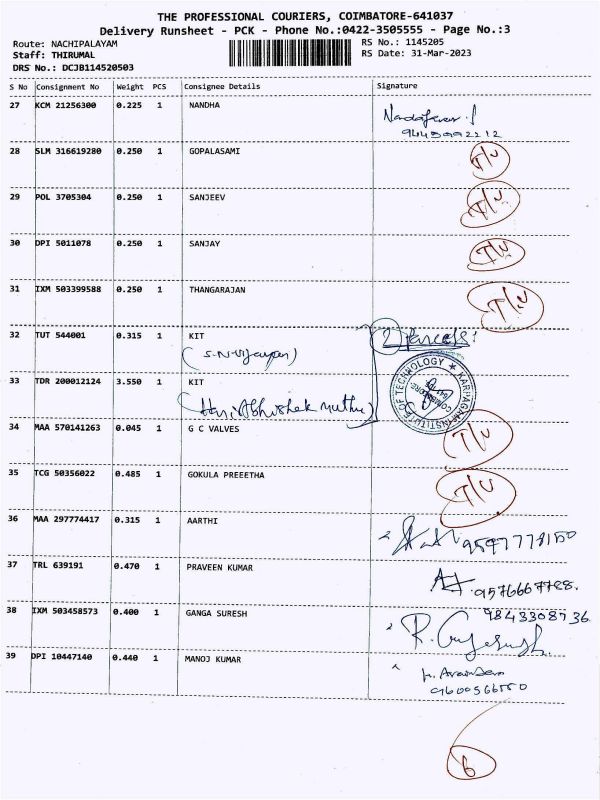 THE PROFESSIONAL COURIERS, COIMBATORE-641037
Delivery Runsheet - PCK - Phone No.:0422-3505555 - Page No.:3
Route: NACHIPALAYAM RS No.: 1145205
Staff: THIRUMAL RS Date: 31-Mar-2023
DRS No.: DCJB114520503
S No Consignment No Weight PCS Consignee Details Signature
27 KCM 21256300 0.225 1 NANDHA
28 SLM 316619280 0.250 1 GOPALASAMI T/U
29 POL 3705304 0.250 1 SANJEEV T/U
30 DPI 5011078 0.250 1 SANJAY T/U
31 IXM 503399588 0.250 1 THANGARAJAN T/U
32 TUT 544001 0.315 1 KIT 2 Parcels
33 TDR 200012124 3.550 1 KIT
KARPAGAM INSTITUTE OF TECHNOLOGY
COIMBATORE
(Hari Abhishek Muthu)
34 MAA 570141263 0.045 1 G C VALVES T/U
35 TCG 50356022 0.485 1 GOKULA PREEETHA T/U
36 MAA 297774417 0.315 1 AARTHI
37 TRL 639191 0.470 1 PRAVEEN KUMAR
9843308736
38 IXM 503458573 0.400 1 GANGA SURESH
39 DPI 10447140 0.440 1 MANOJ KUMAR
6